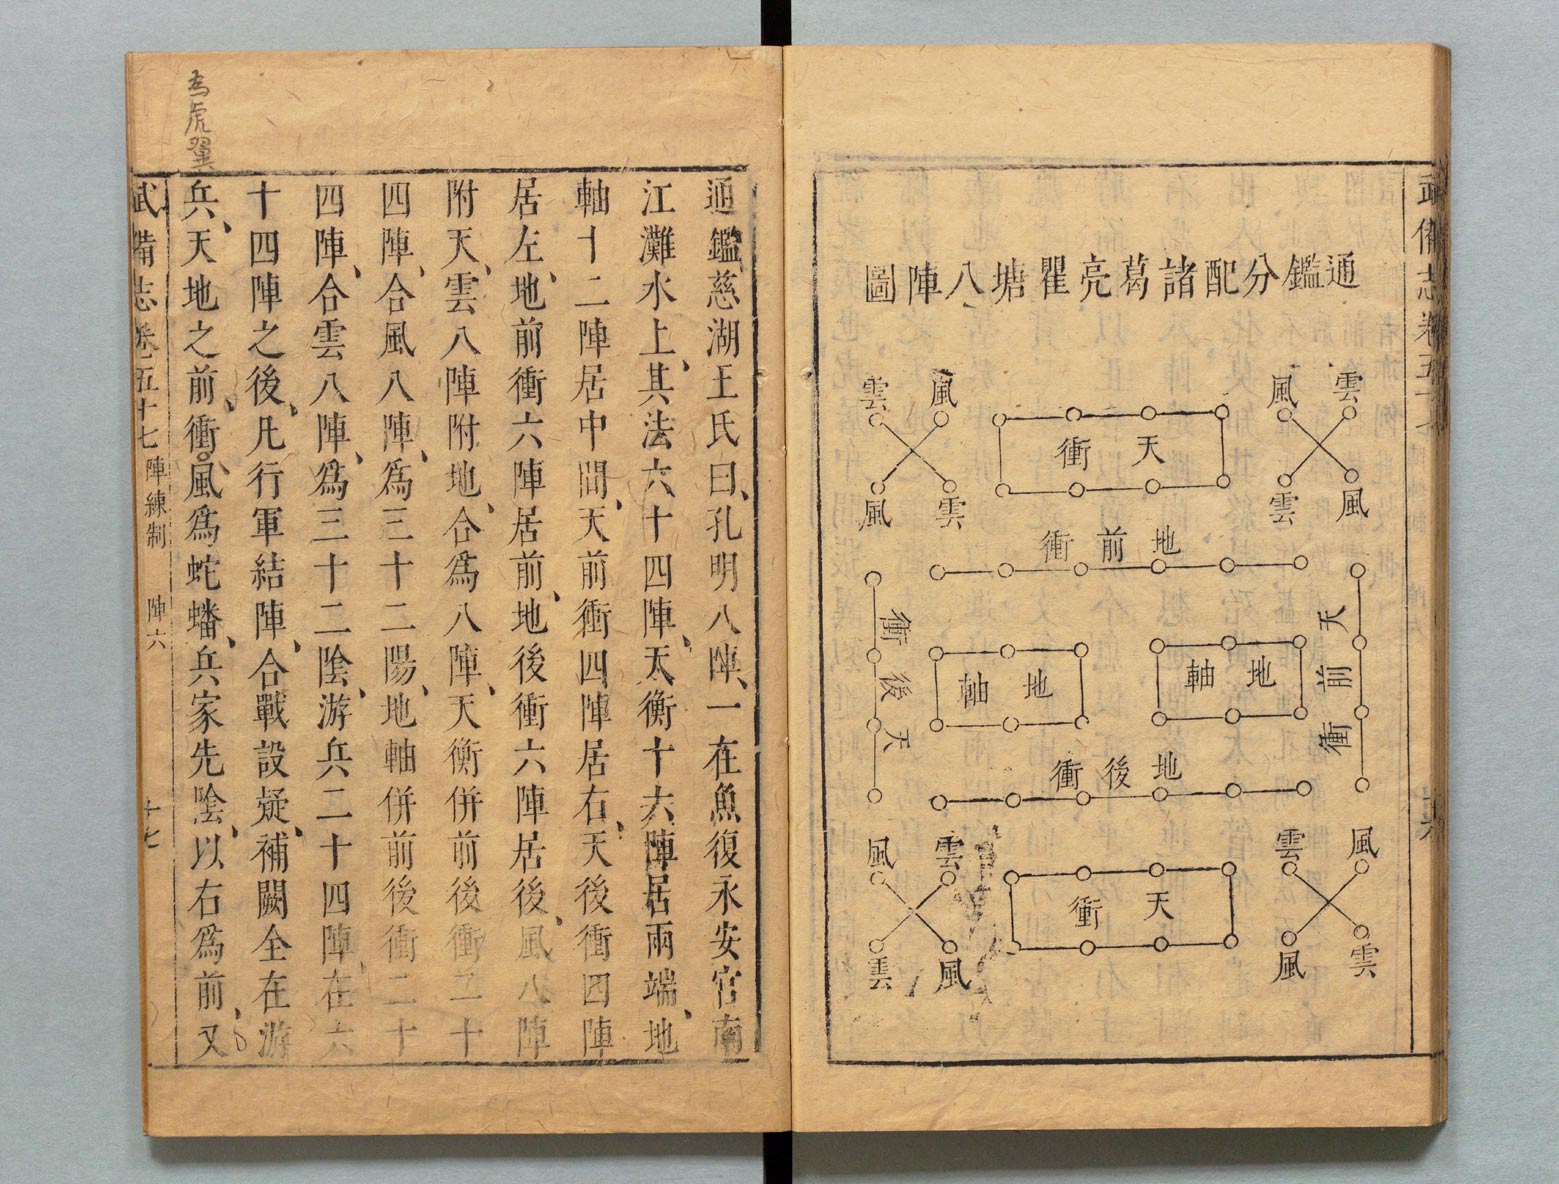 武備志卷五十七
通鑑分配諸葛亮瞿塘八陣圖
雲 風 風 雲
天衝
風 雲 雲 風
地前衝
天前衝
地軸
地軸
天後衝
地後衝
風 雲 雲 風
天衝
雲 風 風 雲
通鑑、慈湖王氏曰、孔明八陣、一在魚復永安宮南
江灘水上、其法六十四陣、天衡十六陣居兩端、地
軸十二陣居中間、天前衝四陣居右、天後衝四陣
居左、地前衝六陣居前、地後衝六陣居後、風八陣
附天、雲八陣附地、合爲八陣、天衡併前後衝二十
四陣、合風八陣、爲三十二陽、地軸併前後衝二十
四陣、合雲八陣、爲三十二陰、游兵二十四陣、在六
十四陣之後、凡行軍結陣、合戰設疑、補闕全在游
兵、天地之前、衝、風爲蛇蟠、兵家先陰、以右爲前、又
為虎翼
武備志卷五十七 陣練制 陣六 十七